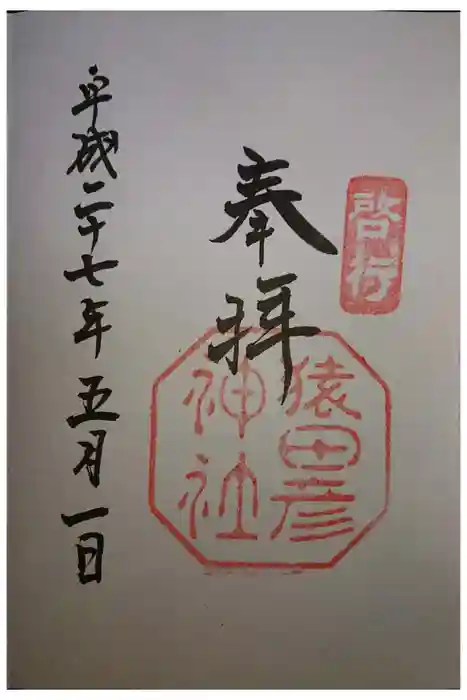 啓行
奉拝
猿田彦
神社
平成二十七年五月一日